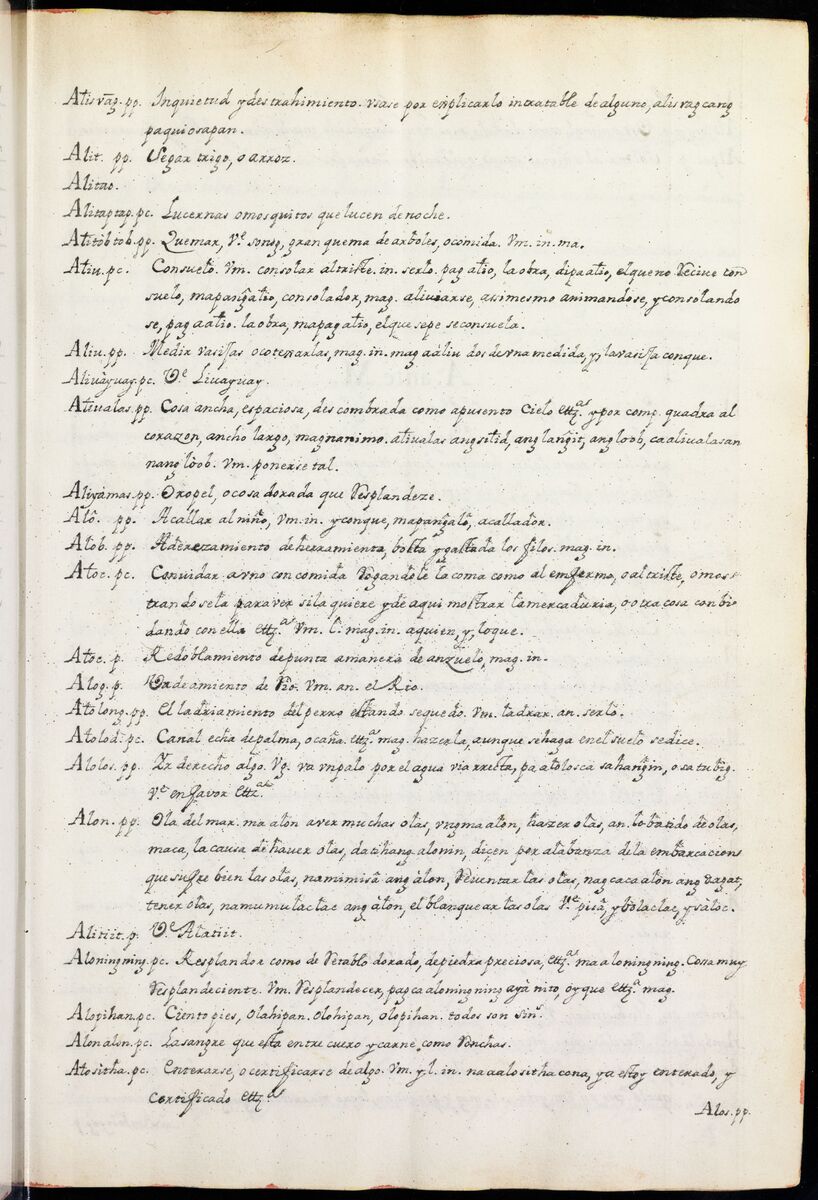 Alisvāg. pp. Inquietud y destrahimiento. vsase por explicarlo intratable de alguno, alisvag cang
paquiosapan.
Alit. pp. Segar trigo, o arroz.
Alitao.
Alitaptap. pc. Lucernas o mosquitos que lucen de noche.
Alitòbtob. pp. Quemar, V.e sonog, gran quema de arboles, o comida. Vm. in. ma.
Aliu. pc. Consuelo. Vm. consolar al triste. in. serlo. pag alio, la obra, dipa alio, el que no Recive con
suelo, mapang̃alio, consolador, mag. aliviarse, asimesmo animandose, y consolando
se, pag aalio. la obra, mapagalio, el que sepe se consuela.
Aliu. pp. Medir vasijas o cotexarlas, mag. in. mag aàliu dos de vna medida, y, la vasija conque.
Alivàyuay. pc. V.e Livayuay.
Alivalas. pp. Cosa ancha, espaciosa, des combrada como aposento Cielo ettz.as y por comp. quadra al
corazon, ancho largo, magnanimo. alivalas ang silid, ang lang̃it, ang loob, ca alivalasan
nang lòob. Vm. ponerse tal.
Aliyàmas. pp. Oropel, o cosa dorada que Resplandeze.
Alô. pp. Acallar al niño, Vm. in. y conque, mapang̃alo, acallador.
Alob. pp. Aderezamiento de herramienta, bolta y gastada los filos. mag. in.
Aloc. pc. Convidar a vno con comida Rogandole la coma como al enfermo, o al triste, o mos
trandosela para ver si la quiere y de aqui mostrar la mercaduria, o otra cosa conbi
dando con ella ettz.as Vm. l. mag. in. a quien, y, lo que.
Aloc. p. Redoblamiento de punta a manera de anzuelo, mag. in.
Alog. p. Vadeamiento de Rio. Vm. an. el Rio.
Alolong. pp. El ladriamiento del perro estando sequedo. Vm. ladrar. an. serlo.
Alolod. pc. Canal echa de palma, o caña. ettz.a mag. hazerla, aunque se haga en el suelo se dice.
Alolos. pp. Yr derecho algo. Vg. va vn palo por el agua via rrecta, pa alolos ca sa hang̃in, o sa tubig.
V.e en favor ettz.as
Alon. pp. Ola del mar. ma alon aver muchas olas, vng̃ma alon, hazer olas, an. lo batido de olas,
maca, la causa de haver olas, da ti hang. alonin, dicen por alabanza de la embarcacion
que sufre bien las olas, namimisā ang àlon, Reventar las olas, nag caca alon ang Dagat,
tener olas, namumulactac ang àlon, el blanquear las olas V.e pisā, y bolactac, y sàloc.
Alitiit. p. V.e Alatiit.
Aloningning. pc. Resplandor como de Retablo dorado, de piedra preciosa, ettz.as ma aloningning. Cosa muy
Resplandeciente. Vm. Resplandecer, pagca aloningning ayà nito, ò y que ettz.a mag.
Alopihan. pc. Ciento pies, olahipan. olohipan, olopihan. todos son sin.s
Alonalon. pc. La sangre que esta entre cuero y carne como Ronchas.
Alositha. pc. Enterarse, o certificarse de algo. Vm. y. l. in. na aalositha cona, ya estoy enterado, y
Certificado ettz.as
Alos. pp.